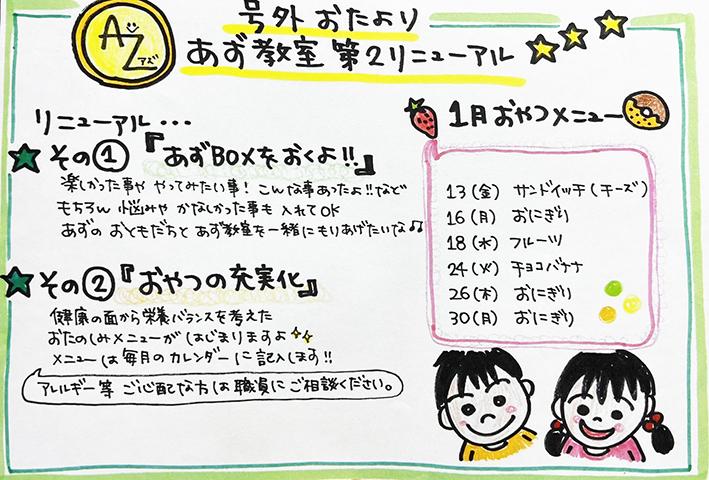 AZ
アズ
号外 おたより
あず教室 第2リニューアル
リニューアル・・・
その① 『あずBOXをおくよ!!』
楽しかった事や やってみたい事! こんな事あったよ!!など
もちろん 悩みや かなしかった事も 入れてOK
あずの おともだちと あず教室を一緒にもりあげたいな♫
その② 『おやつの充実化』
健康の面から栄養バランスを考えた
おたのしみメニューが はじまりますよ
メニューは毎月のカレンダーに記入します!!
アレルギー等 ご心配な方は職員にご相談ください。
1月おやつメニュー
13(金) サンドイッチ(チーズ)
16(月) おにぎり
18(水) フルーツ
24(火) チョコバナナ
26(木) おにぎり
30(月) おにぎり